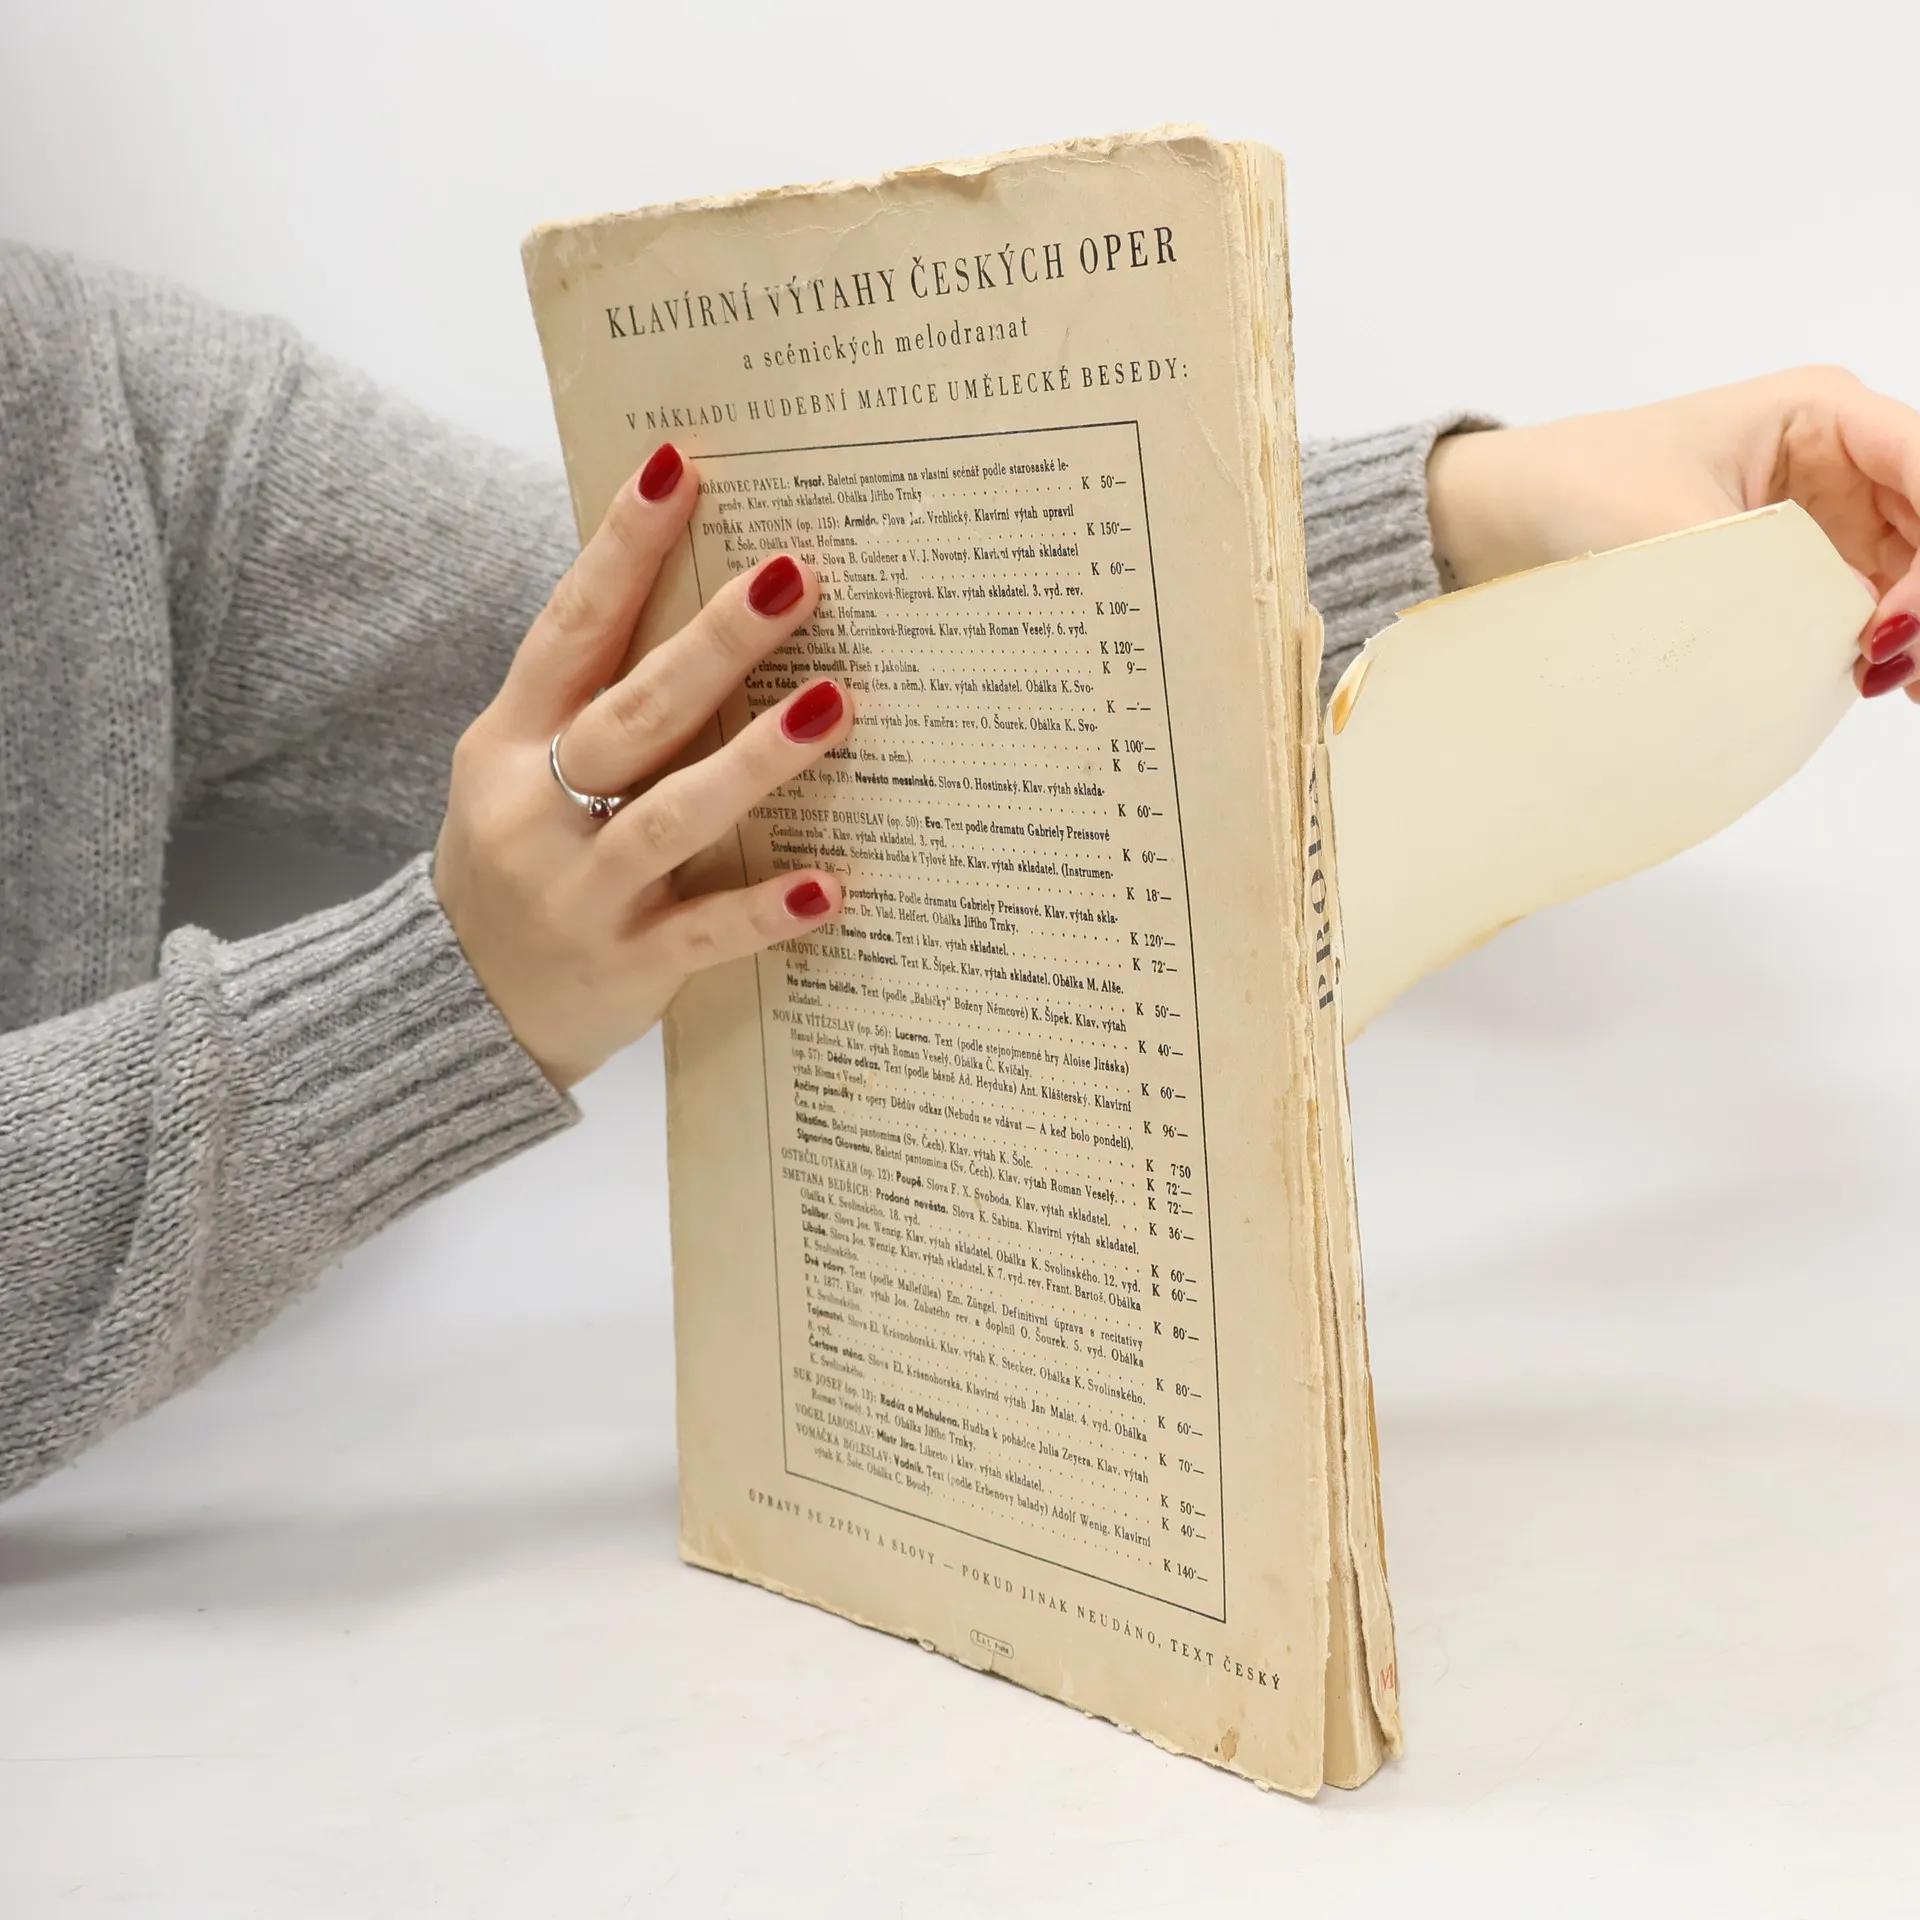 KLAVÍRNÍ VÝTAHY ČESKÝCH OPER
a scénických melodramat
V NÁKLADU HUDEBNÍ MATICE UMĚLECKÉ BESEDY:
BOŘKOVEC PAVEL: Krysař. Baletní pantomima na vlastní scénář podle starosaské le-
gendy. Klav. výtah skladatel. Obálka Jiřího Trnky K 50·—
DVOŘÁK ANTONÍN (op. 115): Armida. Slova Jar. Vrchlický. Klavírní výtah upravil
K. Šolc. Obálka Vlast. Hofmana. K 150·—
(op. 14) Slova B. Guldener a V. J. Novotný. Klavírní výtah skladatel
L. Sutnara. 2. vyd. K 60·—
M. Červinková-Riegrová. Klav. výtah skladatel. 3. vyd. rev.
Vlast. Hofmana. K 100·—
Slova M. Červinková-Riegrová. Klav. výtah Roman Veselý. 6. vyd.
Šourek. Obálka M. Alše. K 120·—
cizinou jsme bloudili. Píseň z Jakobína. K 9·—
Čert a Káča. Wenig (čes. a něm.). Klav. výtah skladatel. Obálka K. Svo-
linského K —·—
výtah Jos. Faměra: rev. O. Šourek. Obálka K. Svo-
K 100·—
měsíčku (čes. a něm.). K 6·—
(op. 18): Nevěsta messinská. Slova O. Hostinský. Klav. výtah sklada-
2. vyd. K 60·—
FOERSTER JOSEF BOHUSLAV (op. 50): Eva. Text podle dramatu Gabriely Preissové
„Gazdina roba“. Klav. výtah skladatel. 3. vyd. K 60·—
Strakonický dudák. Scénická hudba k Tylově hře. Klav. výtah skladatel. (Instrumen-
tální hlasy K 36·—.) K 18·—
pastorkyňa. Podle dramatu Gabriely Preissové. Klav. výtah skla-
rev. Dr. Vlad. Helfert. Obálka Jiřího Trnky. K 120·—
Ilseino srdce. Text i klav. výtah skladatel. K 72·—
KOVAŘOVIC KAREL: Psohlavci. Text K. Šípek. Klav. výtah skladatel. Obálka M. Alše.
4. vyd. K 50·—
Na starém bělidle. Text (podle „Babičky“ Boženy Němcové) K. Šípek. Klav. výtah
skladatel. K 40·—
NOVÁK VÍTĚZSLAV (op. 56): Lucerna. Text (podle stejnojmenné hry Aloise Jiráska)
Hanuš Jelínek. Klav. výtah Roman Veselý. Obálka Č. Kvíčaly. K 60·—
(op. 57): Dědův odkaz. Text (podle básně Ad. Heyduka) Ant. Klášterský. Klavírní
výtah Roman Veselý K 96·—
Ančiny písničky z opery Dědův odkaz (Nebudu se vdávat — A keď bolo pondelí).
Čes. a něm. K 7·50
Nikotina. Baletní pantomima (Sv. Čech). Klav. výtah K. Šolc. K 72·—
Signorina Gioventu. Baletní pantomima (Sv. Čech). Klav. výtah Roman Veselý. K 72·—
OSTRČIL OTAKAR (op. 12): Poupě. Slova F. X. Svoboda. Klav. výtah skladatel. K 36·—
SMETANA BEDŘICH: Prodaná nevěsta. Slova K. Sabina. Klavírní výtah skladatel.
Obálka K. Svolinského. 18. vyd. K 60·—
Dalibor. Slova Jos. Wenzig. Klav. výtah skladatel. Obálka K. Svolinského. 12. vyd. K 60·—
Libuše. Slova Jos. Wenzig. Klav. výtah skladatel. K 7. vyd. rev. Frant. Bartoš. Obálka
K. Svolinského. K 80·—
Dvě vdovy. Text (podle Mallefillea) Em. Züngel. Definitivní úprava s recitativy
z r. 1877. Klav. výtah Jos. Zubatého rev. a doplnil O. Šourek. 5. vyd. Obálka
K. Svolinského. K 80·—
Tajemství. Slova El. Krásnohorská. Klav. výtah K. Stecker. Obálka K. Svolinského.
8. vyd. K 60·—
Čertova stěna. Slova El. Krásnohorská. Klavírní výtah Jan Malát. 4. vyd. Obálka
K. Svolinského. K 70·—
SUK JOSEF (op. 13): Radúz a Mahulena. Hudba k pohádce Julia Zeyera. Klav. výtah
Roman Veselý. 3. vyd. Obálka Jiřího Trnky. K 50·—
VOGEL JAROSLAV: Mistr Jíra. Libreto i klav. výtah skladatel. K 40·—
VOMÁČKA BOLESLAV: Vodník. Text (podle Erbenovy balady) Adolf Wenig. Klavírní
výtah K. Šolc. Obálka C. Boudy. K 140·—
ÚPRAVY SE ZPĚVY A SLOVY — POKUD JINAK NEUDÁNO, TEXT ČESKÝ